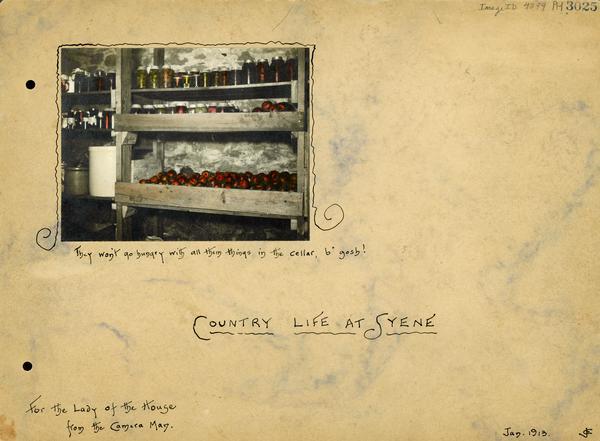 Image ID 4099 PH 3025
They won't go hungry with all them things in the cellar, b' gosh!
COUNTRY LIFE AT SYENE
For the Lady of the House
from the Camera Man.
Jan. 1913.